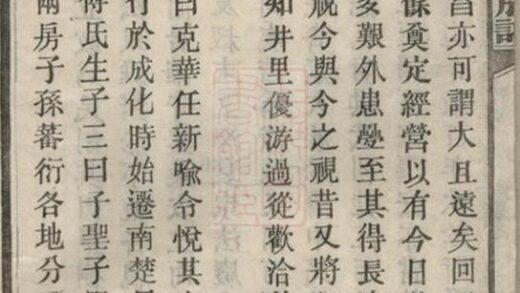 昌亦可謂大且遠矣回
餘奠定經營以有今日
亥艱外患疊至其得長
視今與今之視昔又將
知井里優游過從歡洽
曰克華任新喻令悅其
行於成化時始遷南楚
傅氏生子三曰子聖子
兩房子孫蕃衍各地分